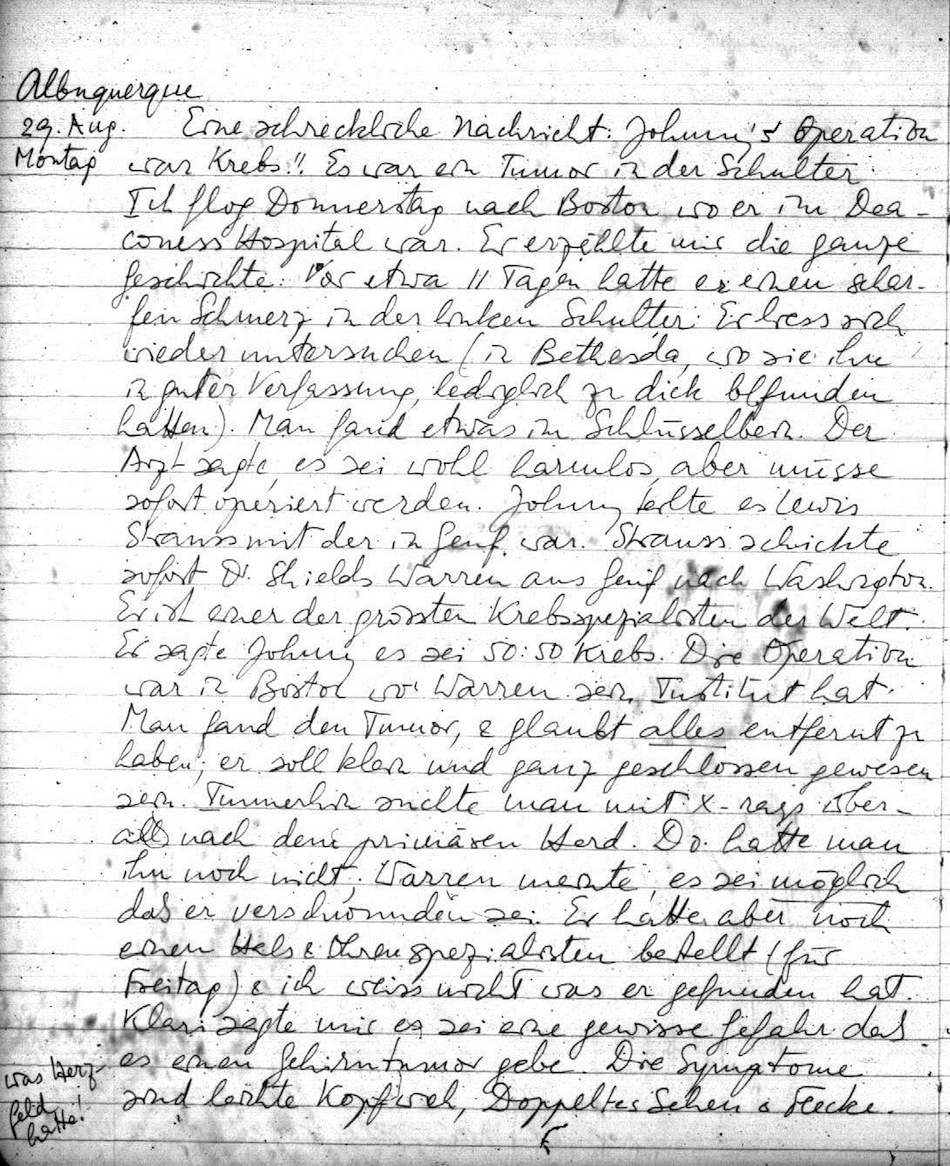 Albuquerque
29. Aug. Eine schreckliche Nachricht: Johnny's Operation
Montag war Krebs!! Es war ein Tumor in der Schulter.
Ich flog Donnerstag nach Boston wo er im Dea-
coness Hospital war. Er erzählte mir die ganze
Geschichte: Vor etwa 11 Tagen hatte er einen schar-
fen Schmerz in der linken Schulter. Er liess sich
wieder untersuchen (in Bethesda, wo sie ihn
in guter Verfassung, lediglich zu dick befunden
hatten). Man fand etwas im Schlüsselbein. Der
Arzt sagte, es sei wohl harmlos, aber müsse
sofort operiert werden. Johnny teilte es Lewis
Strauss mit der in Genf war. Strauss schickte
sofort Dr. Shields Warren aus Genf nach Washington.
Er ist einer der grössten Krebsspezialisten der Welt.
Er sagte Johnny es sei 50:50 Krebs. Die Operation
war in Boston wo Warren sein Institut hat.
Man fand den Tumor, & glaubt alles entfernt zu
haben; er soll klein und ganz geschlossen gewesen
sein. Immerhin suchte man mit X-rays über-
all nach dem primären Herd. Do. hatte man
ihn noch nicht; Warren meinte, es sei möglich
das er verschwunden sei. Er hatte aber noch
einen Hals & Ohrenspezialisten bestellt (für
Freitag) & ich weiss nicht was er gefunden hat.
Klari sagte mir es sei eine gewisse Gefahr das
es einen Gehirntumor gebe. Die Symptome
sind leichte Kopfweh, Doppeltes Sehen & Flecke.
was Herz-
feld
hatte!